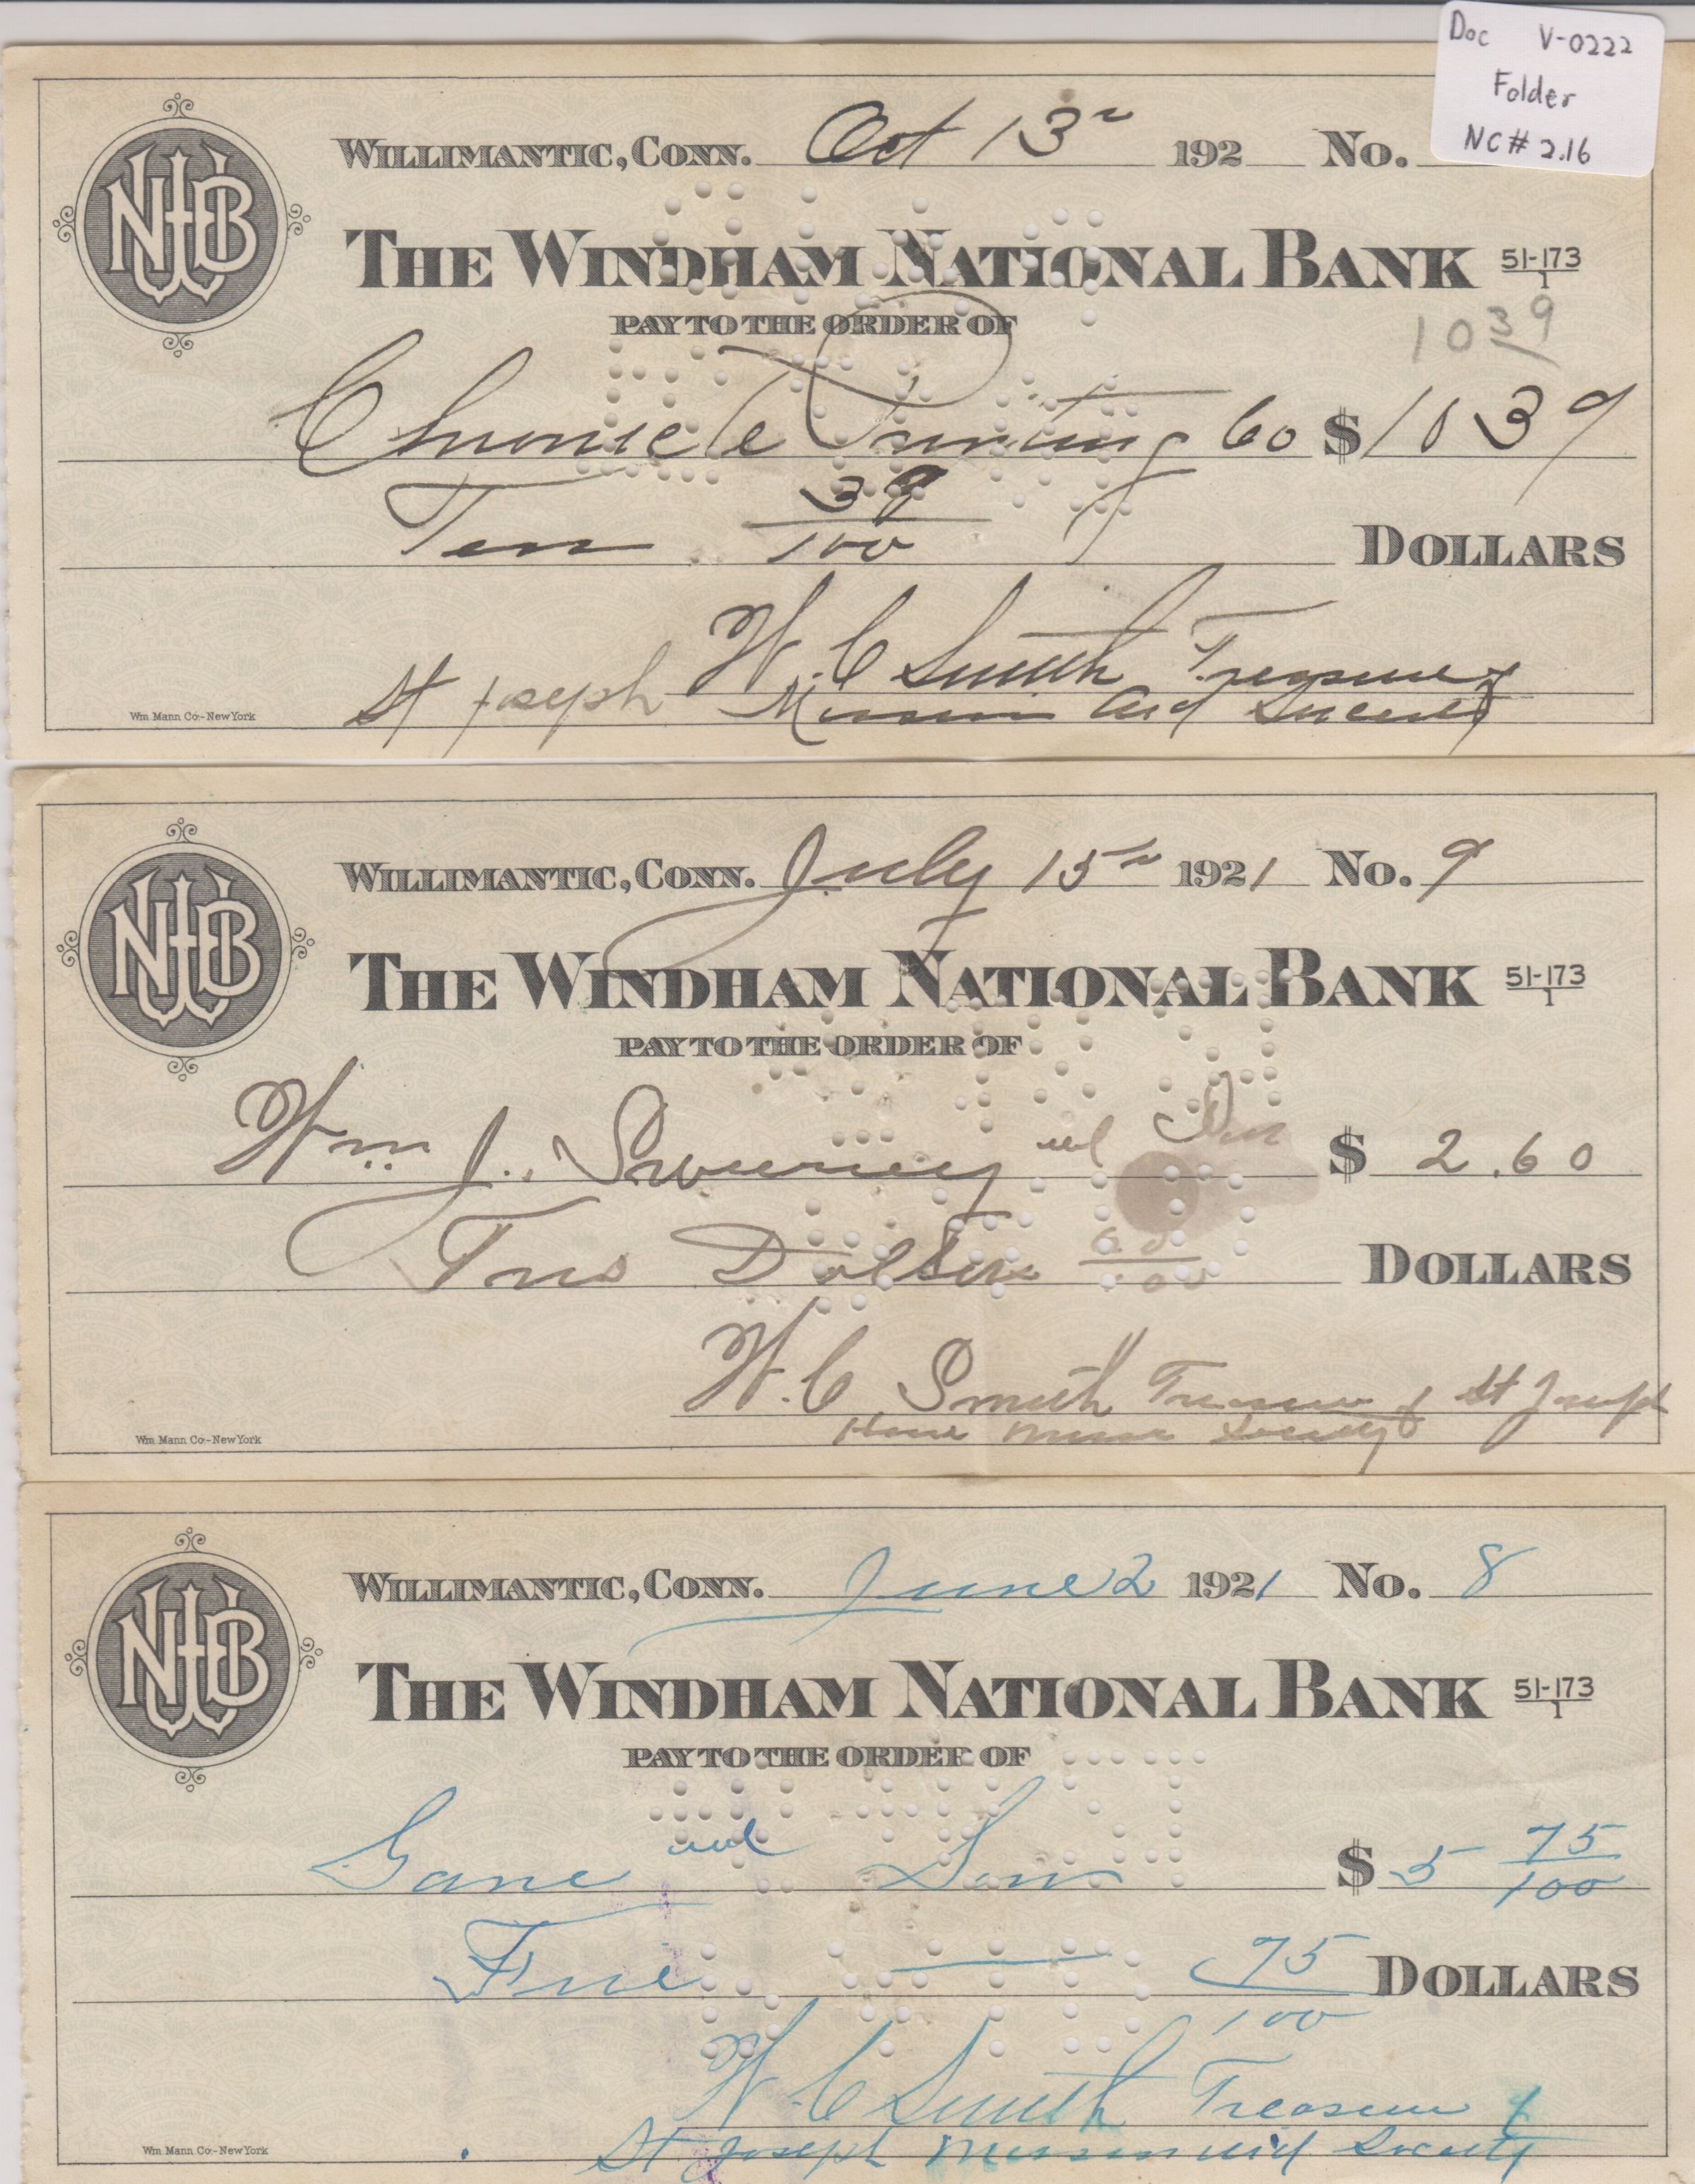 Doc V-0222
Folder
NC# 2.16
WILLIMANTIC, CONN. Oct 13 192 No.
THE WINDHAM NATIONAL BANK 51-173
1
1039
PAY TO THE ORDER OF
Chronicle Printing Co $ 10 39
Ten 39/100 DOLLARS
W. C Smith Treasurer
St Joseph Mission Aid Society
Wm. Mann Co.-New York
NWB
WILLIMANTIC, CONN. July 15 1921 No. 9
THE WINDHAM NATIONAL BANK 51-173
1
PAY TO THE ORDER OF
Wm J. Sweeney and Son $ 2.60
Two Dollars 60/100 DOLLARS
W. C. Smith Treasurer of St Joseph
Home Society
Wm. Mann Co.-New York
NWB
WILLIMANTIC, CONN. June 2 1921 No. 8
THE WINDHAM NATIONAL BANK 51-173
1
PAY TO THE ORDER OF
Gane and Son $ 5 75/100
Five 75/100 DOLLARS
W. C Smith Treasurer of
St Joseph Mission Aid Society
Wm. Mann Co.-New York
NWB